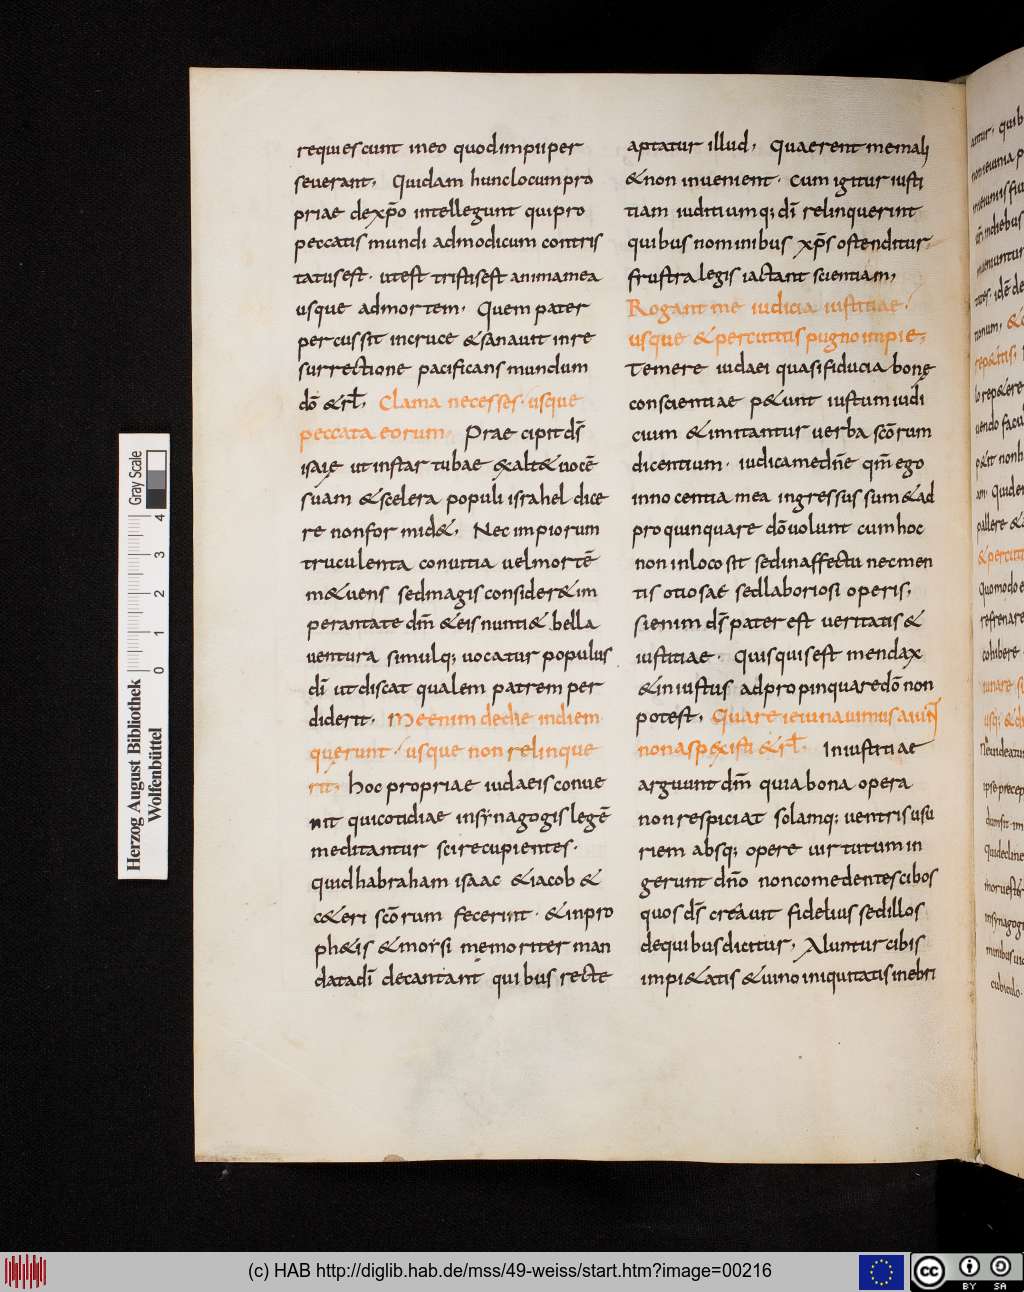 requiescunt ineo quodimpiiper
seuerant, Quidam huncłocumpro
priae dexp̄o intellegunt quipro
peccatis mundi admodicum contris
tatusest. utest tristisest animamea
usque admortem. Quem pater
percussit incruce &sanauit inre
surrectione pacificans mundum
dō &rł, Clama necesses. usque
peccata eorum. Prae cipit dš
isaię ut instar tubae exalt& uocē
suam &scelera populi israhel dice
re nonfor mid&, Nec impiorum
truculenta conuitia uelmortē
m&uens sedmagis consider& im
perantate dm̄ &eis nunti& bella
uentura simulq; uocatur populus
dī ut discat qualem patrem per
diderit. Meenim dedie indiem
quęrunt. usque non relinque
rit, Hoc propriae iudaeis conue
nit qui cotidiae insynagogis legē
meditantur scire cupientes.
quid habraham isaac &iacob &
c&eri scōrum fecerint. &inpro
ph&is &morsi memoriter man
data dī decantant quibus recte
aptatur illud, Quaerent memali
&non inuenient. cum igitur iusti
tiam iuditiumq; dī relinquerint
quibus nominibus xp̄s ostenditur
frustra legis iactant scientiam,
Rogant me iudicia iustitiae.
usque &percutitis pugno impie;
Temere iudaei quasi fiducia bonę
conscientiae p&unt iustum iudi
cium &imitantur uerba scōrum
dicentium. iudica me dn̄e qm̄ ego
inno centia mea ingressus sum &ad
pro quinquare dō uolunt cum hoc
non inloco sit sed inaffectu nec men
tis otiosae sed laboriosi operis,
sienim dš pater est ueritatis &
iustitiae. Quisquis est mendax
&iniustus adpropinquare dō non
potest, Quare ieiunauimus
non aspexisti &rł. Iniustitiae
arguunt dm̄ quia bona opera
non respiciat solamq; uentris usu
riem absq; opere uirtutum in
gerunt dn̄o non comedentes cibos
quos dš creauit fidelius sed illos
de quibus dicitur, Aluntur cibis
impi&atis &uino iniquitatis inebri
Gray Scale
4
3
2
1
0
Herzog August Bibliothek
Wolfenbüttel
(c) HAB http://diglib.hab.de/mss/49-weiss/start.htm?image=00216
cc
BY
SA